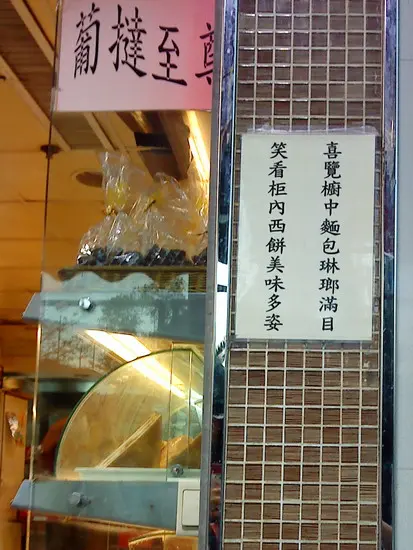 葡撻至尊
喜覽櫥中麵包琳瑯滿目
笑看柜內西餅美味多姿